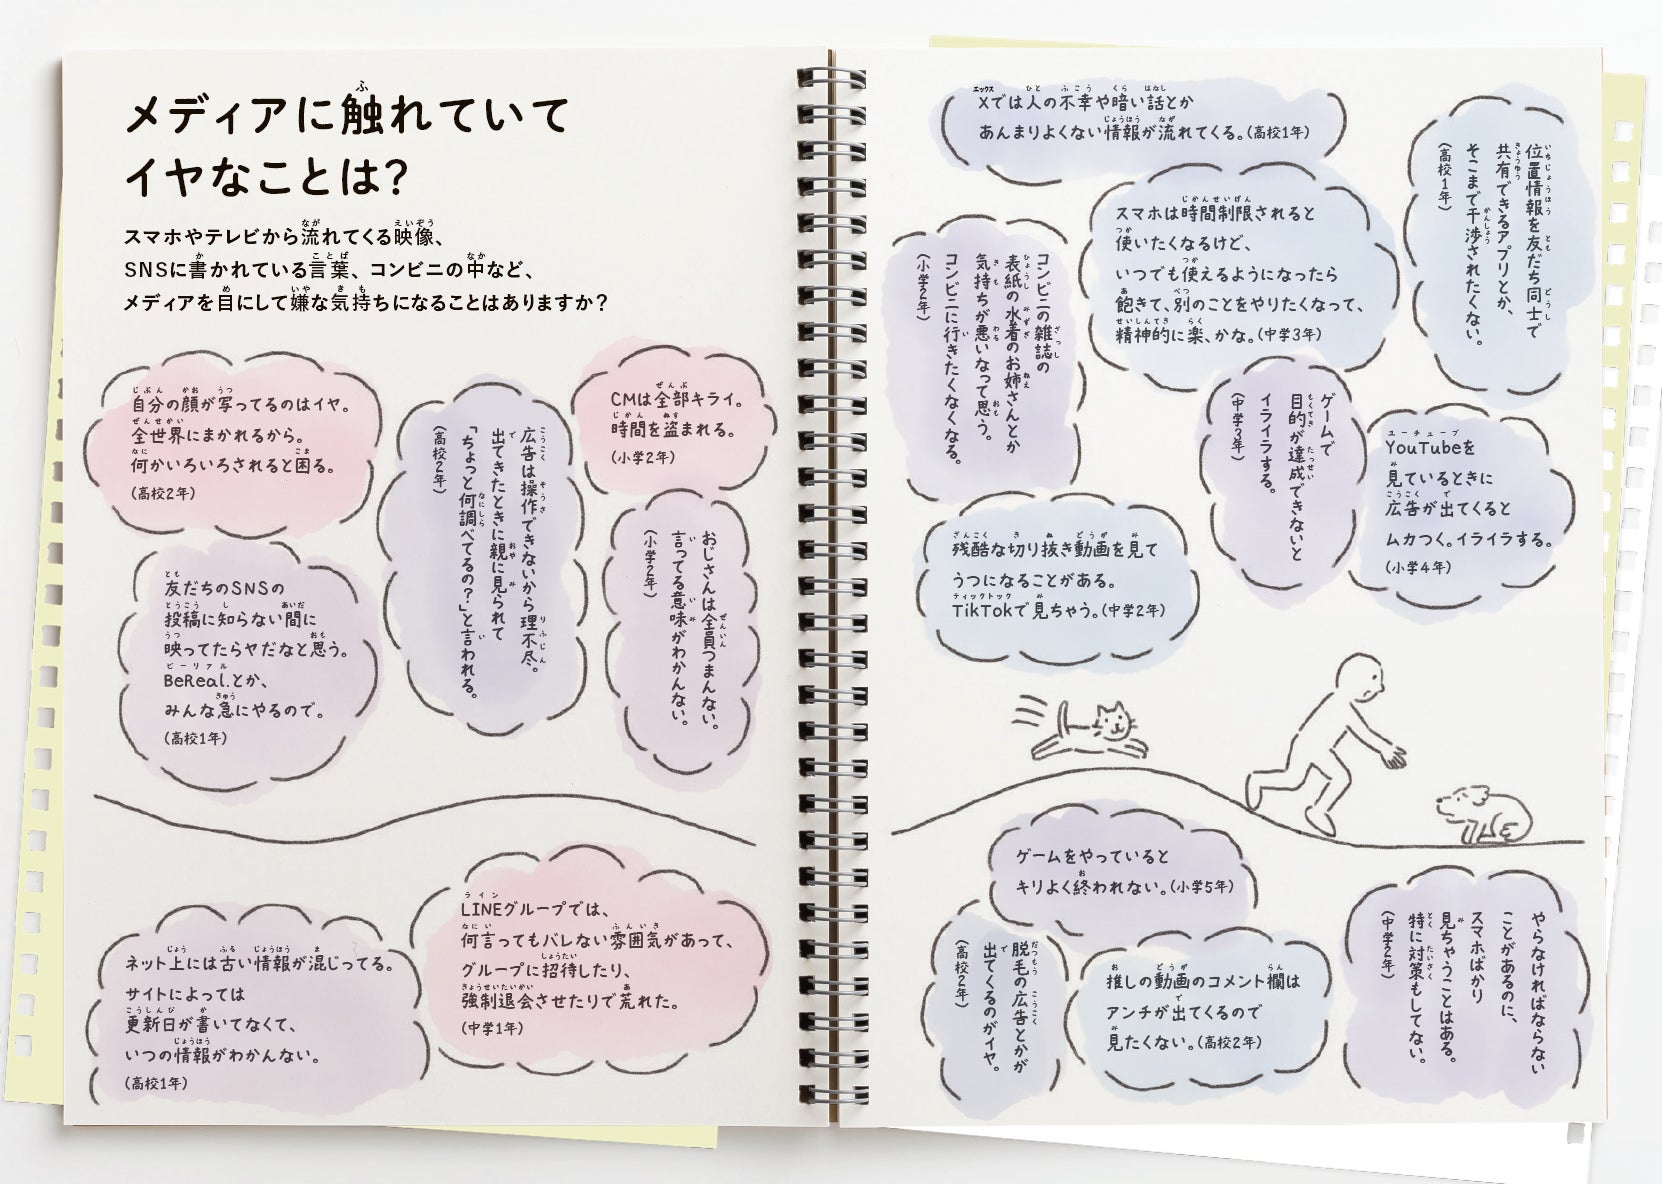 メディアに触れていて
イヤなことは?
スマホやテレビから流れてくる映像、
SNSに書かれている言葉、コンビニの中など、
メディアを目にして嫌な気持ちになることはありますか?
自分の顔が写ってるのはイヤ。
全世界にまかれるから。
何かいろいろされると困る。
(高校2年)
広告は操作できないから理不尽。
出てきたときに親に見られて
「ちょっと何調べてるの?」と言われる。
(高校2年)
CMは全部キライ。
時間を盗まれる。
(小学2年)
友だちのSNSの
投稿に知らない間に
映ってたらヤだなと思う。
BeReal.とか、
みんな急にやるので。
(高校1年)
おじさんは全員つまんない。
言ってる意味がわかんない。
(小学2年)
ネット上には古い情報が混じってる。
サイトによっては
更新日が書いてなくて、
いつの情報がわかんない。
(高校1年)
LINEグループでは、
何言ってもバレない雰囲気があって、
グループに招待したり、
強制退会させたりで荒れた。
(中学1年)
Xでは人の不幸や暗い話とか
あんまりよくない情報が流れてくる。(高校1年)
位置情報を友だち同士で
共有できるアプリとか、
そこまで干渉されたくない。
(高校1年)
スマホは時間制限されると
使いたくなるけど、
いつでも使えるようになったら
飽きて、別のことをやりたくなって、
精神的に楽、かな。(中学3年)
コンビニの雑誌の
表紙の水着のお姉さんとか
気持ちが悪いなって思う。
コンビニに行きたくなくなる。
(小学2年)
ゲームで
目的が達成できないと
イライラする。
(中学3年)
YouTubeを
見ているときに
広告が出てくると
ムカつく。イライラする。
(小学4年)
残酷な切り抜き動画を見て
うつになることがある。
TikTokで見ちゃう。(中学2年)
ゲームをやっていると
キリよく終われない。(小学5年)
脱毛の広告とかが
出てくるのがイヤ。
(高校2年)
推しの動画のコメント欄は
アンチが出てくるので
見たくない。(高校2年)
やらなければならない
ことがあるのに、
スマホばかり
見ちゃうことはある。
特に対策もしてない。
(中学2年)